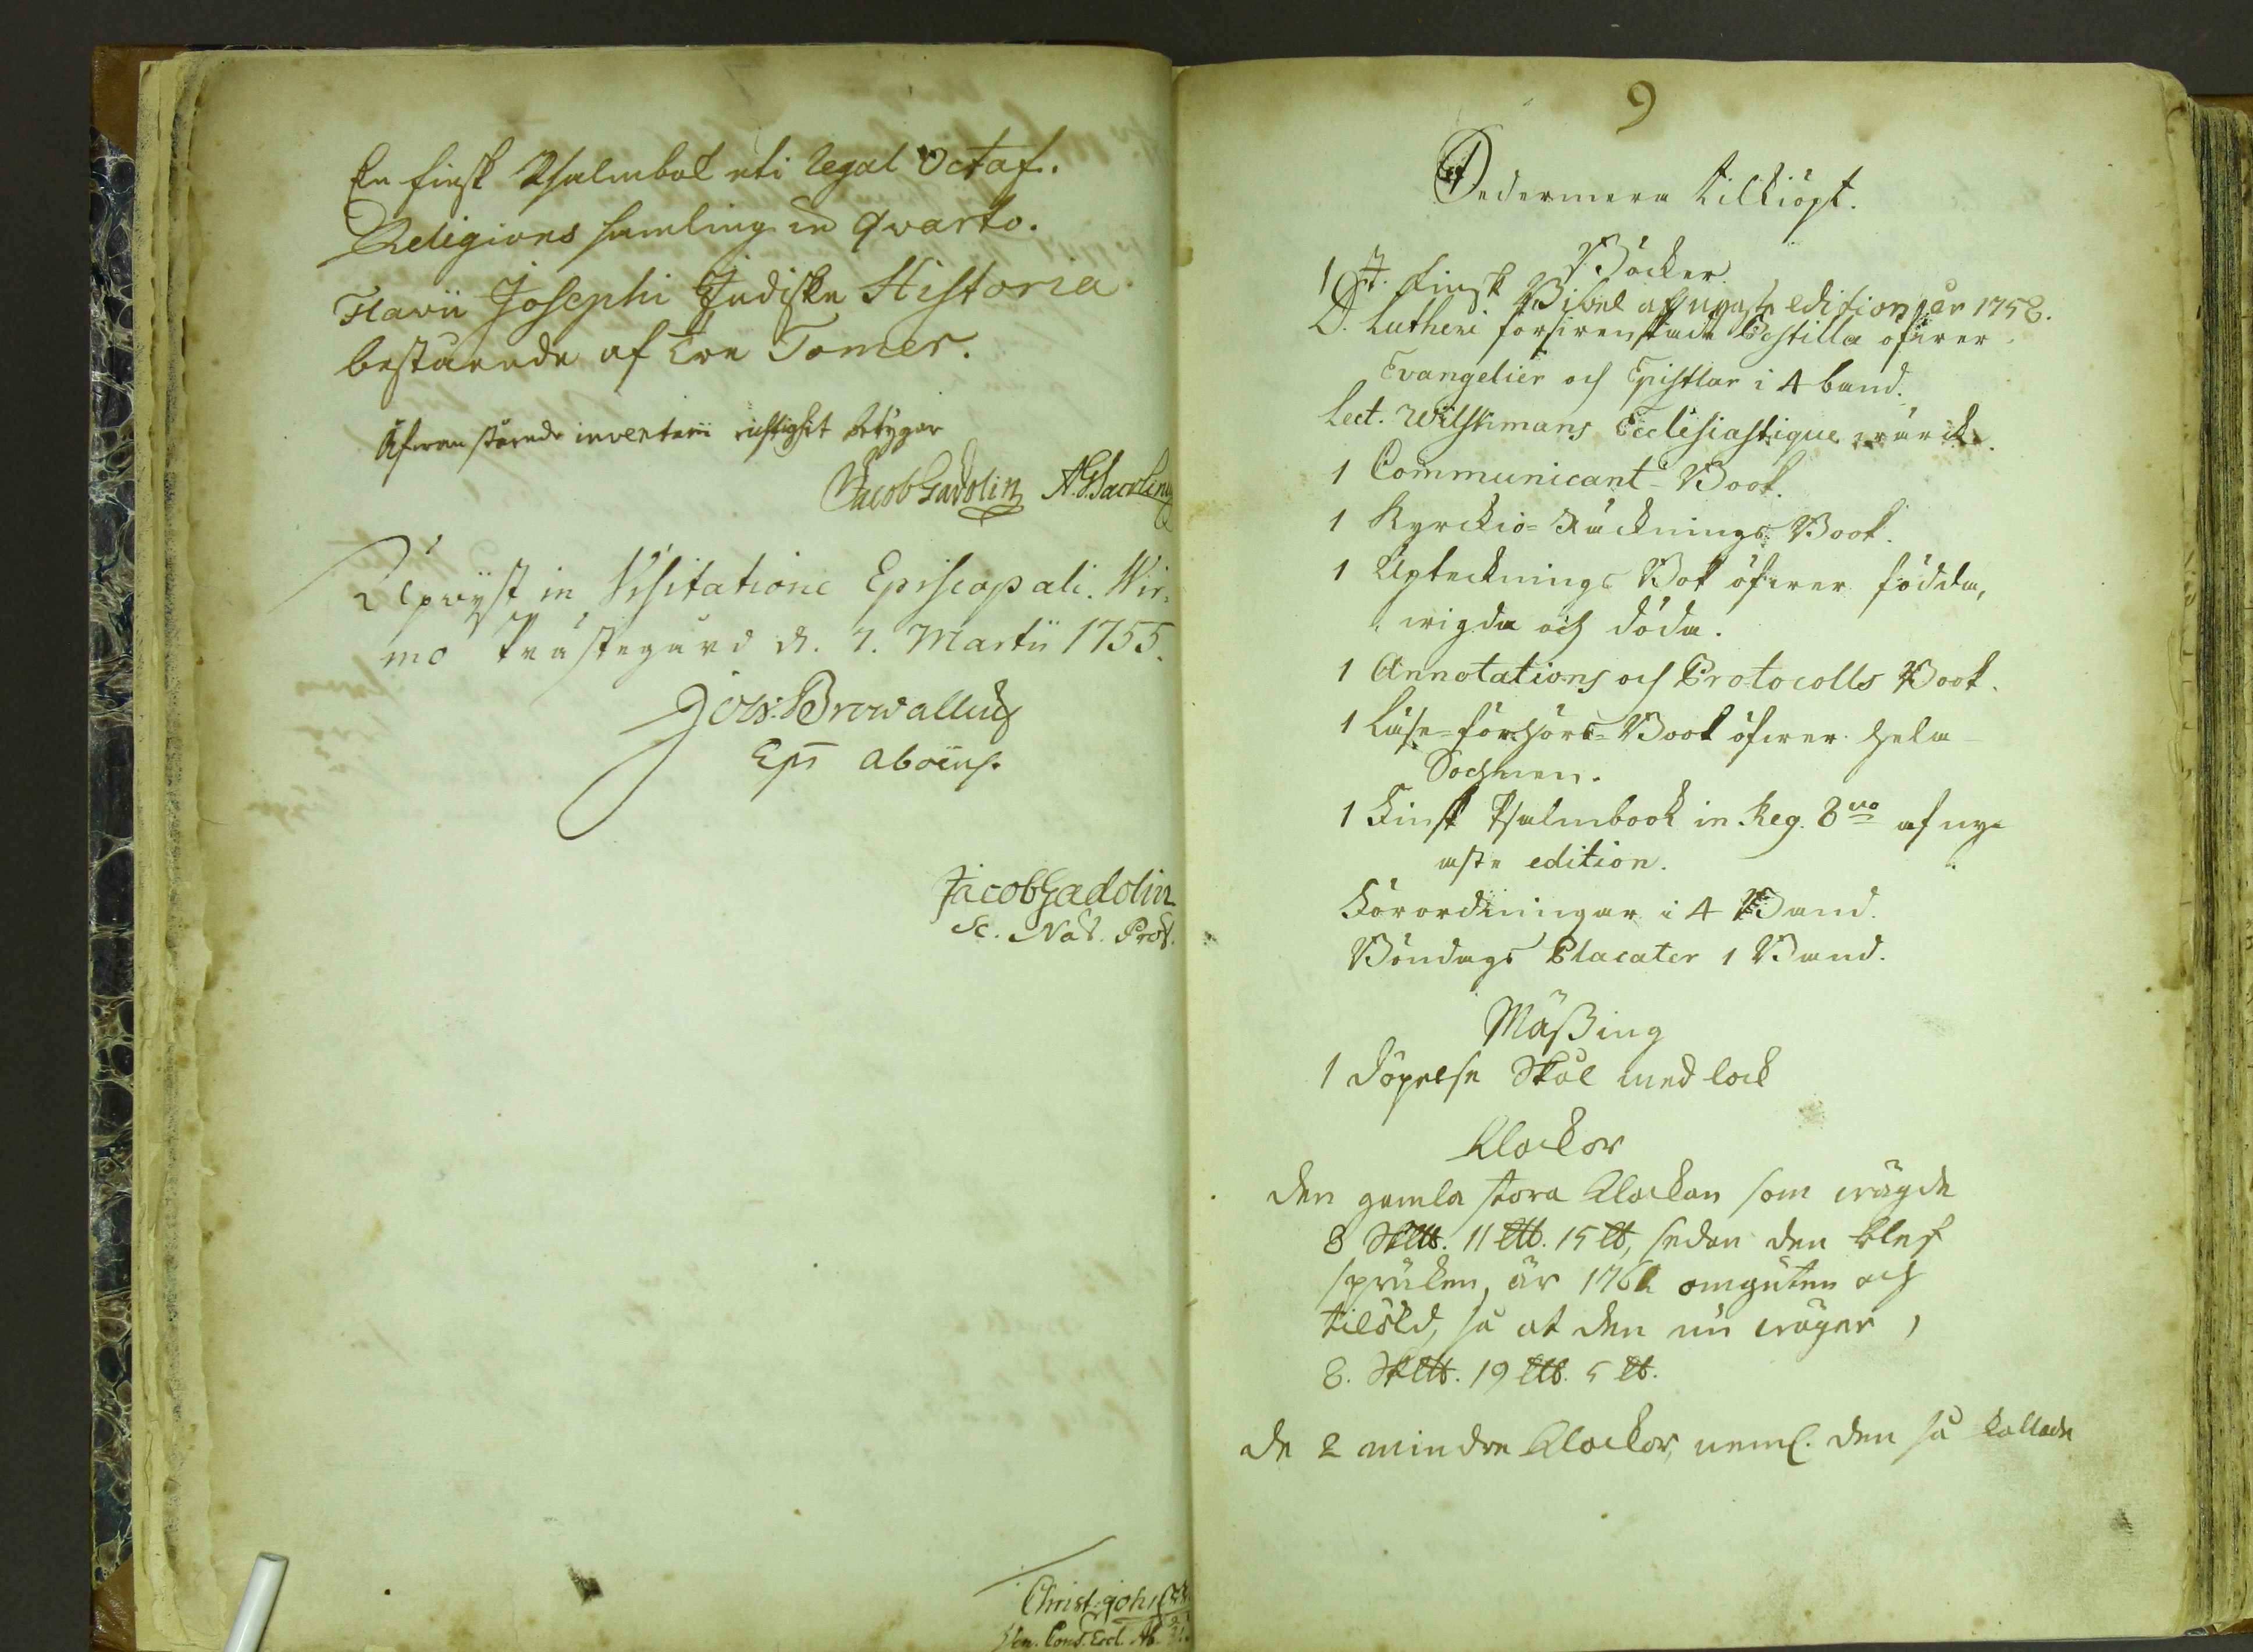 En finsk Psalmbok uti Regal Octaf.
Religions samling in qvarto.
Flavii Josephi Judiske Historia
bestående af Två Tomer.
Åfwan stående inventarii richtighet betygar
Jacob Gadolin A. G.
Upwyst in Visitatione Episcopali. Wir-
mo Prästegård d. 7. Martii 1755.
Joh. Browallius
Eps Aboëns.
Jacob Gadolin
Sc. Nat. Prof.
Christ.
Ven. Cons. Eccl. Ab.
9
Dedermera tilkiöpt.
Böcker
1 st. Finsk Bibel af nyaste edition år 1758.
D. Lutheri försvenskade Postilla öfwer
Evangelier och Epistlar i 4 band.
Lect. Wilskmans Ecclesiastique wärck.
1 Communicant-Book.
1 Kyrckio-Räcknings Book.
1 Uptecknings Bok öfwer födda,
wigda och döda.
1 Annotations och Protocolls Book.
1 Läse-förhörs-Book öfwer hela
Sochnen.
1 Finsk Psalmbook in Reg. 8vo af ny-
aste edition.
Förordningar i 4 Band.
Böndags Placater 1 Band.
Mäßing
1 döpelse Skål med lock
Klockor
den gamla stora Klockan som wägde
8 Sk℔. 11 L℔. 15 ℔, sedan den blef
spruken, är 1762 omguten och
tilökd, så at den nu wäger,
8. Sk℔. 19 L℔. 5 ℔.
de 2 mindre Klockor, neml. den så kallade